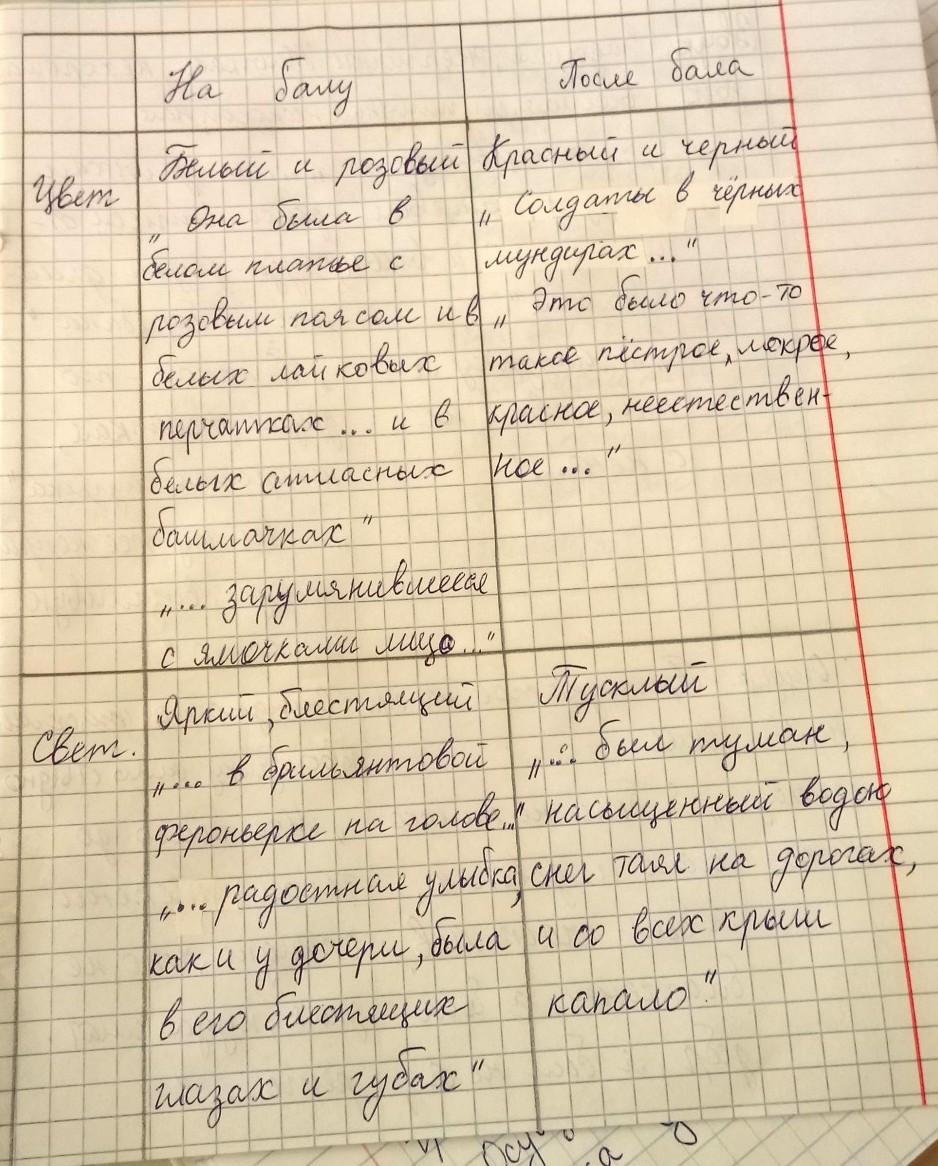 На балу
После бала
Цвет
Белый и розовый
„ Она была в
белом платье с
розовым поясом и в
белых лайковых
перчатках ... и в
белых атласных
башмачках"
„... зарумянившееся
с ямочками лицо..."
Красный и черный
„ Солдаты в чёрных
мундирах ..."
„ Это было что-то
такое пёстрое, мокрое,
красное, неестествен-
ное ..."
Свет.
Яркий, блестящий
„... в брильянтовой
фероньерке на голове..."
„... радостная улыбка,
как и у дочери, была
в его блестящих
глазах и губах"
Тусклый
„... был туман,
насыщенный водою
снег таял на дорогах,
и со всех крыш
капало."